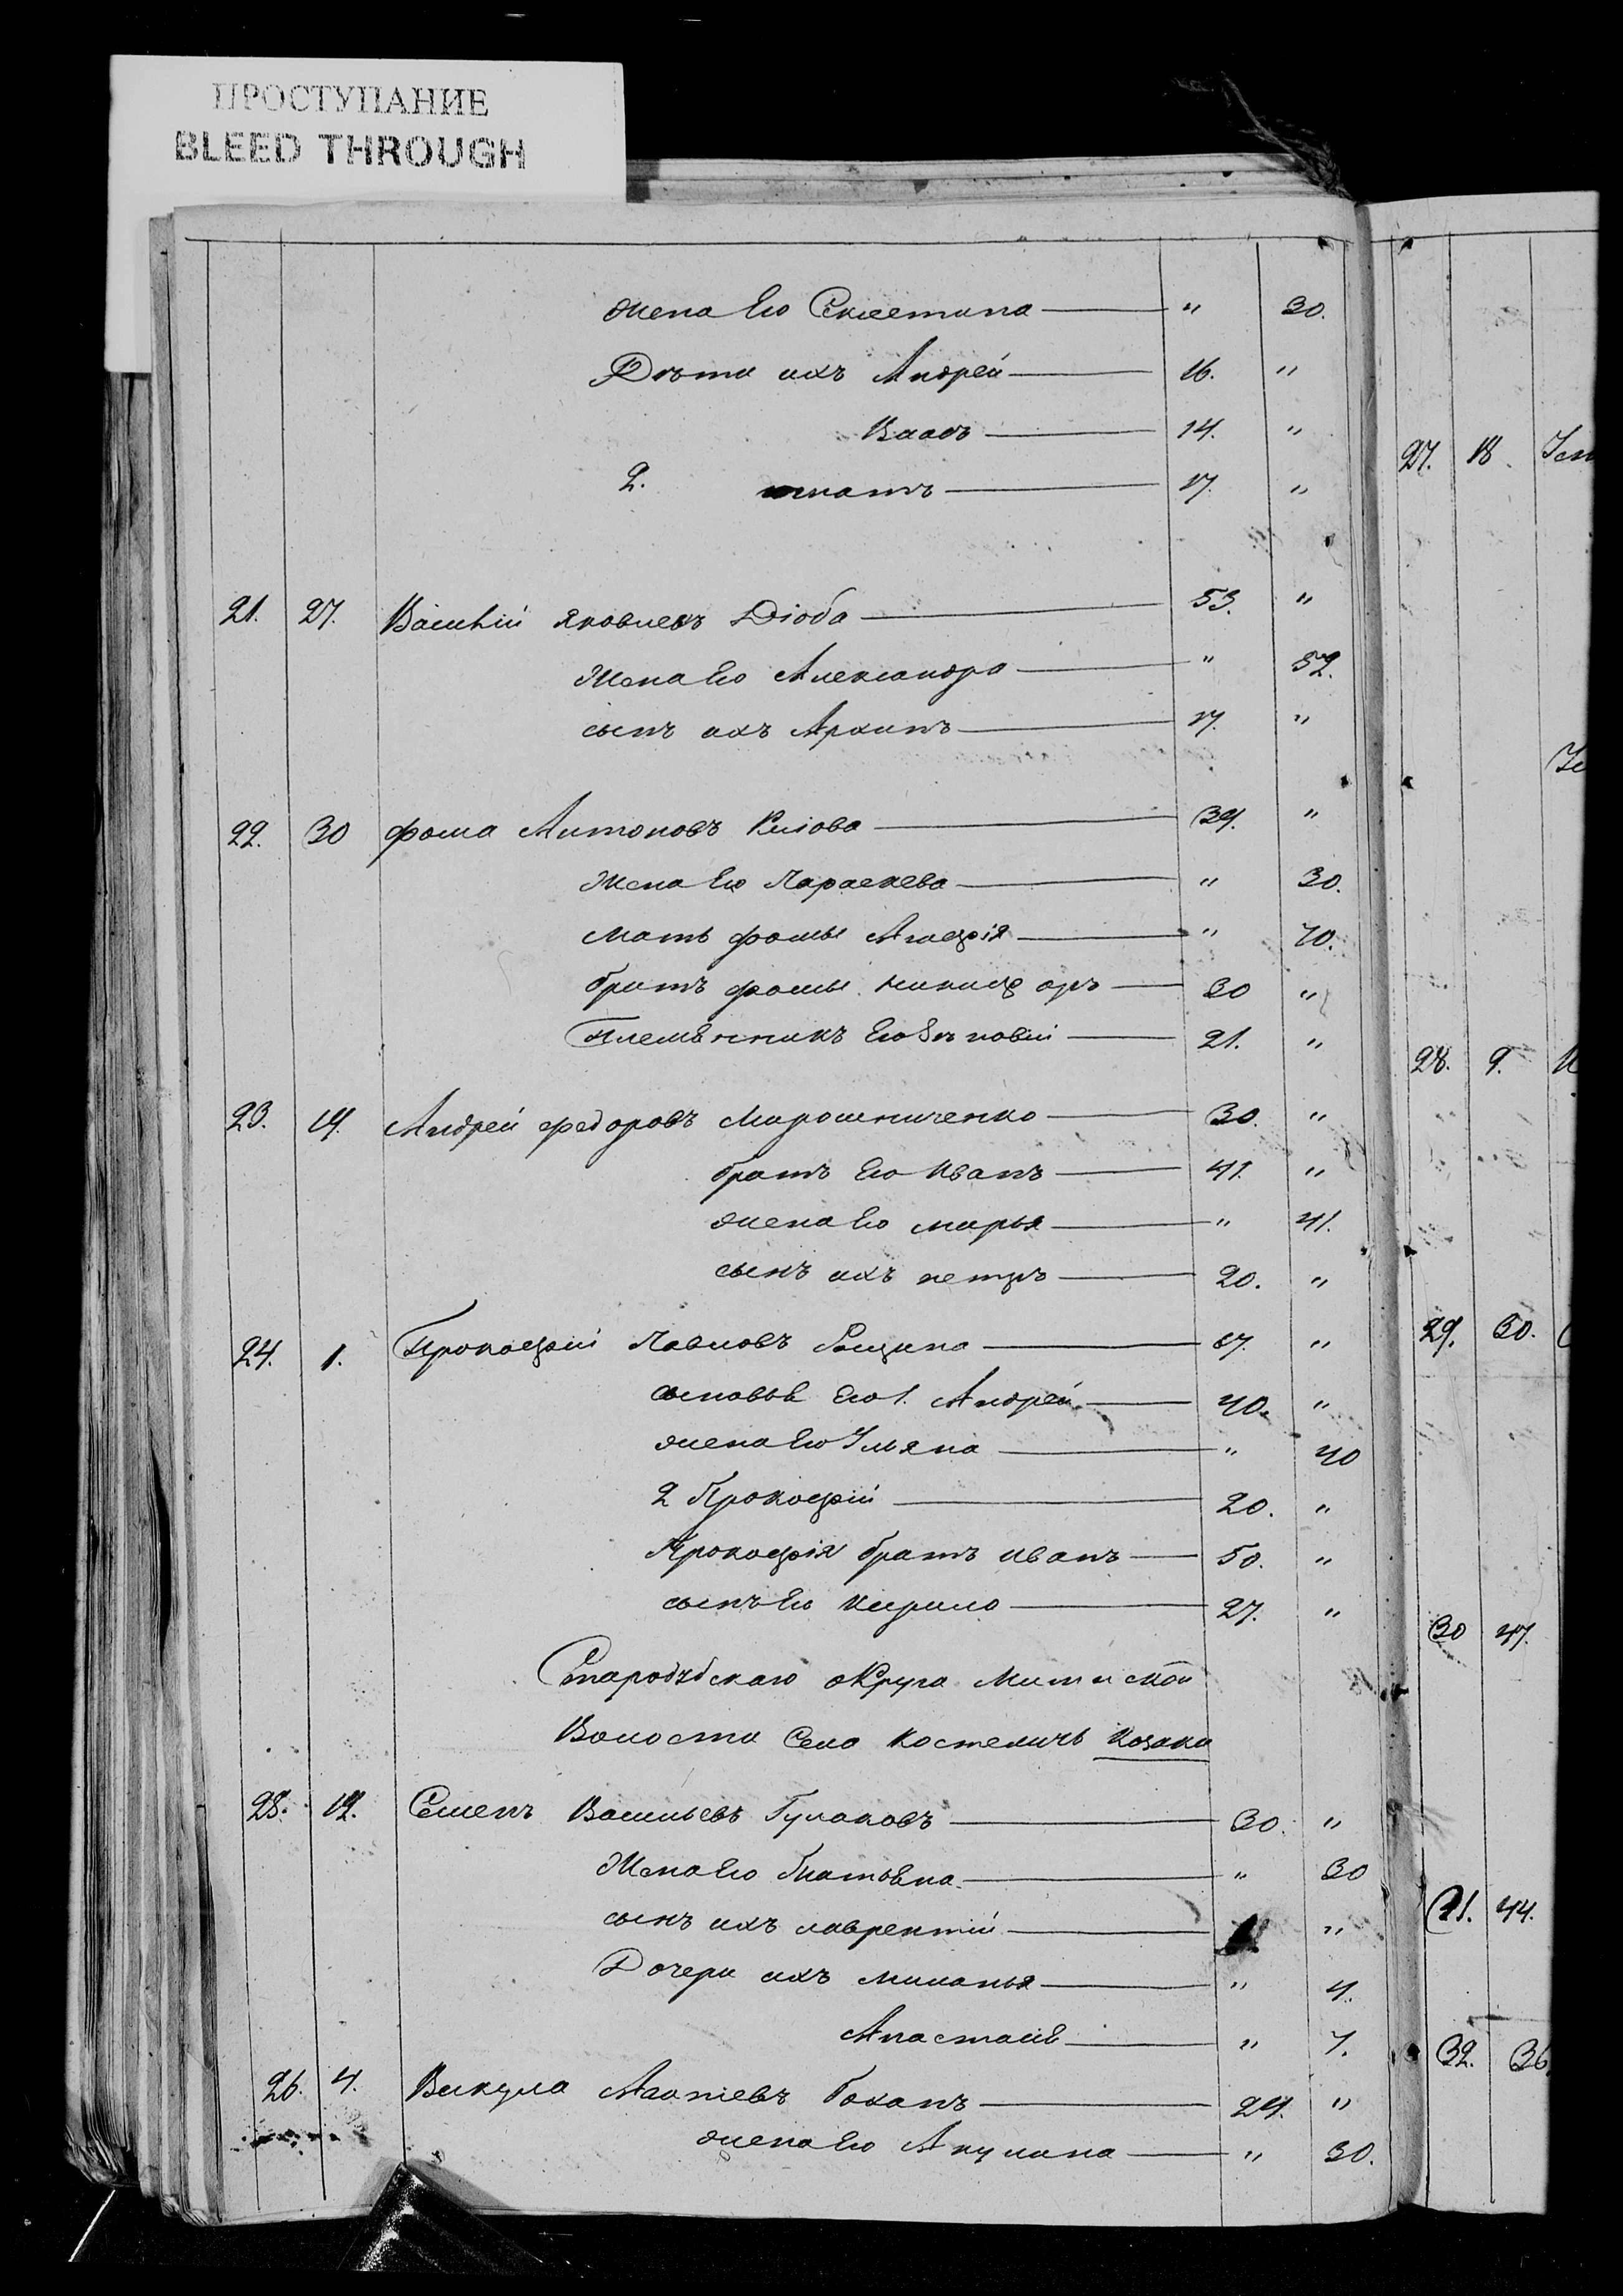 ПРОСТУПАНИЕ
BLEED THROUGH
жена Его " 30.
Дѣти ихъ Андрей 16. "
Власъ 14. "
2. 17. "
21. 27. Василій Яковлевъ Дзюба 53. "
Жена Его Александра " 52.
сынъ ихъ Архипъ 17. "
22. 30 Фома Антоновъ 39. "
Жена Его Параскева " 30.
Мать Фомы " 70.
братъ Фомы Никифоръ 30 "
Племянникъ Его Зѣновій 21. "
23. 19. Андрей Федоровъ Мирошниченко 30. "
братъ Его Иванъ 41. "
жена Его Марья " 41.
сынъ ихъ Петръ 20. "
24. 1. Прокофій Павловъ 67. "
сыновья Его 1. Андрей 40. "
жена Его Уляна " 40
2 Прокофій 20. "
Прокофія братъ Иванъ 50. "
сынъ Его Кирило 27. "
Округа
Волости Села Костеничь Козаки
25. 12. Семенъ Васильевъ Гулаковъ 30. "
Жена Его " 30
сынъ ихъ Лаврентій "
Дочери ихъ Миланья " 4.
Анастасія " 7.
26. 4. Викула 29. "
жена Его Акулина " 30.
27. 18.
28. 9.
29. 30.
30 47.
31. 44.
32. 36